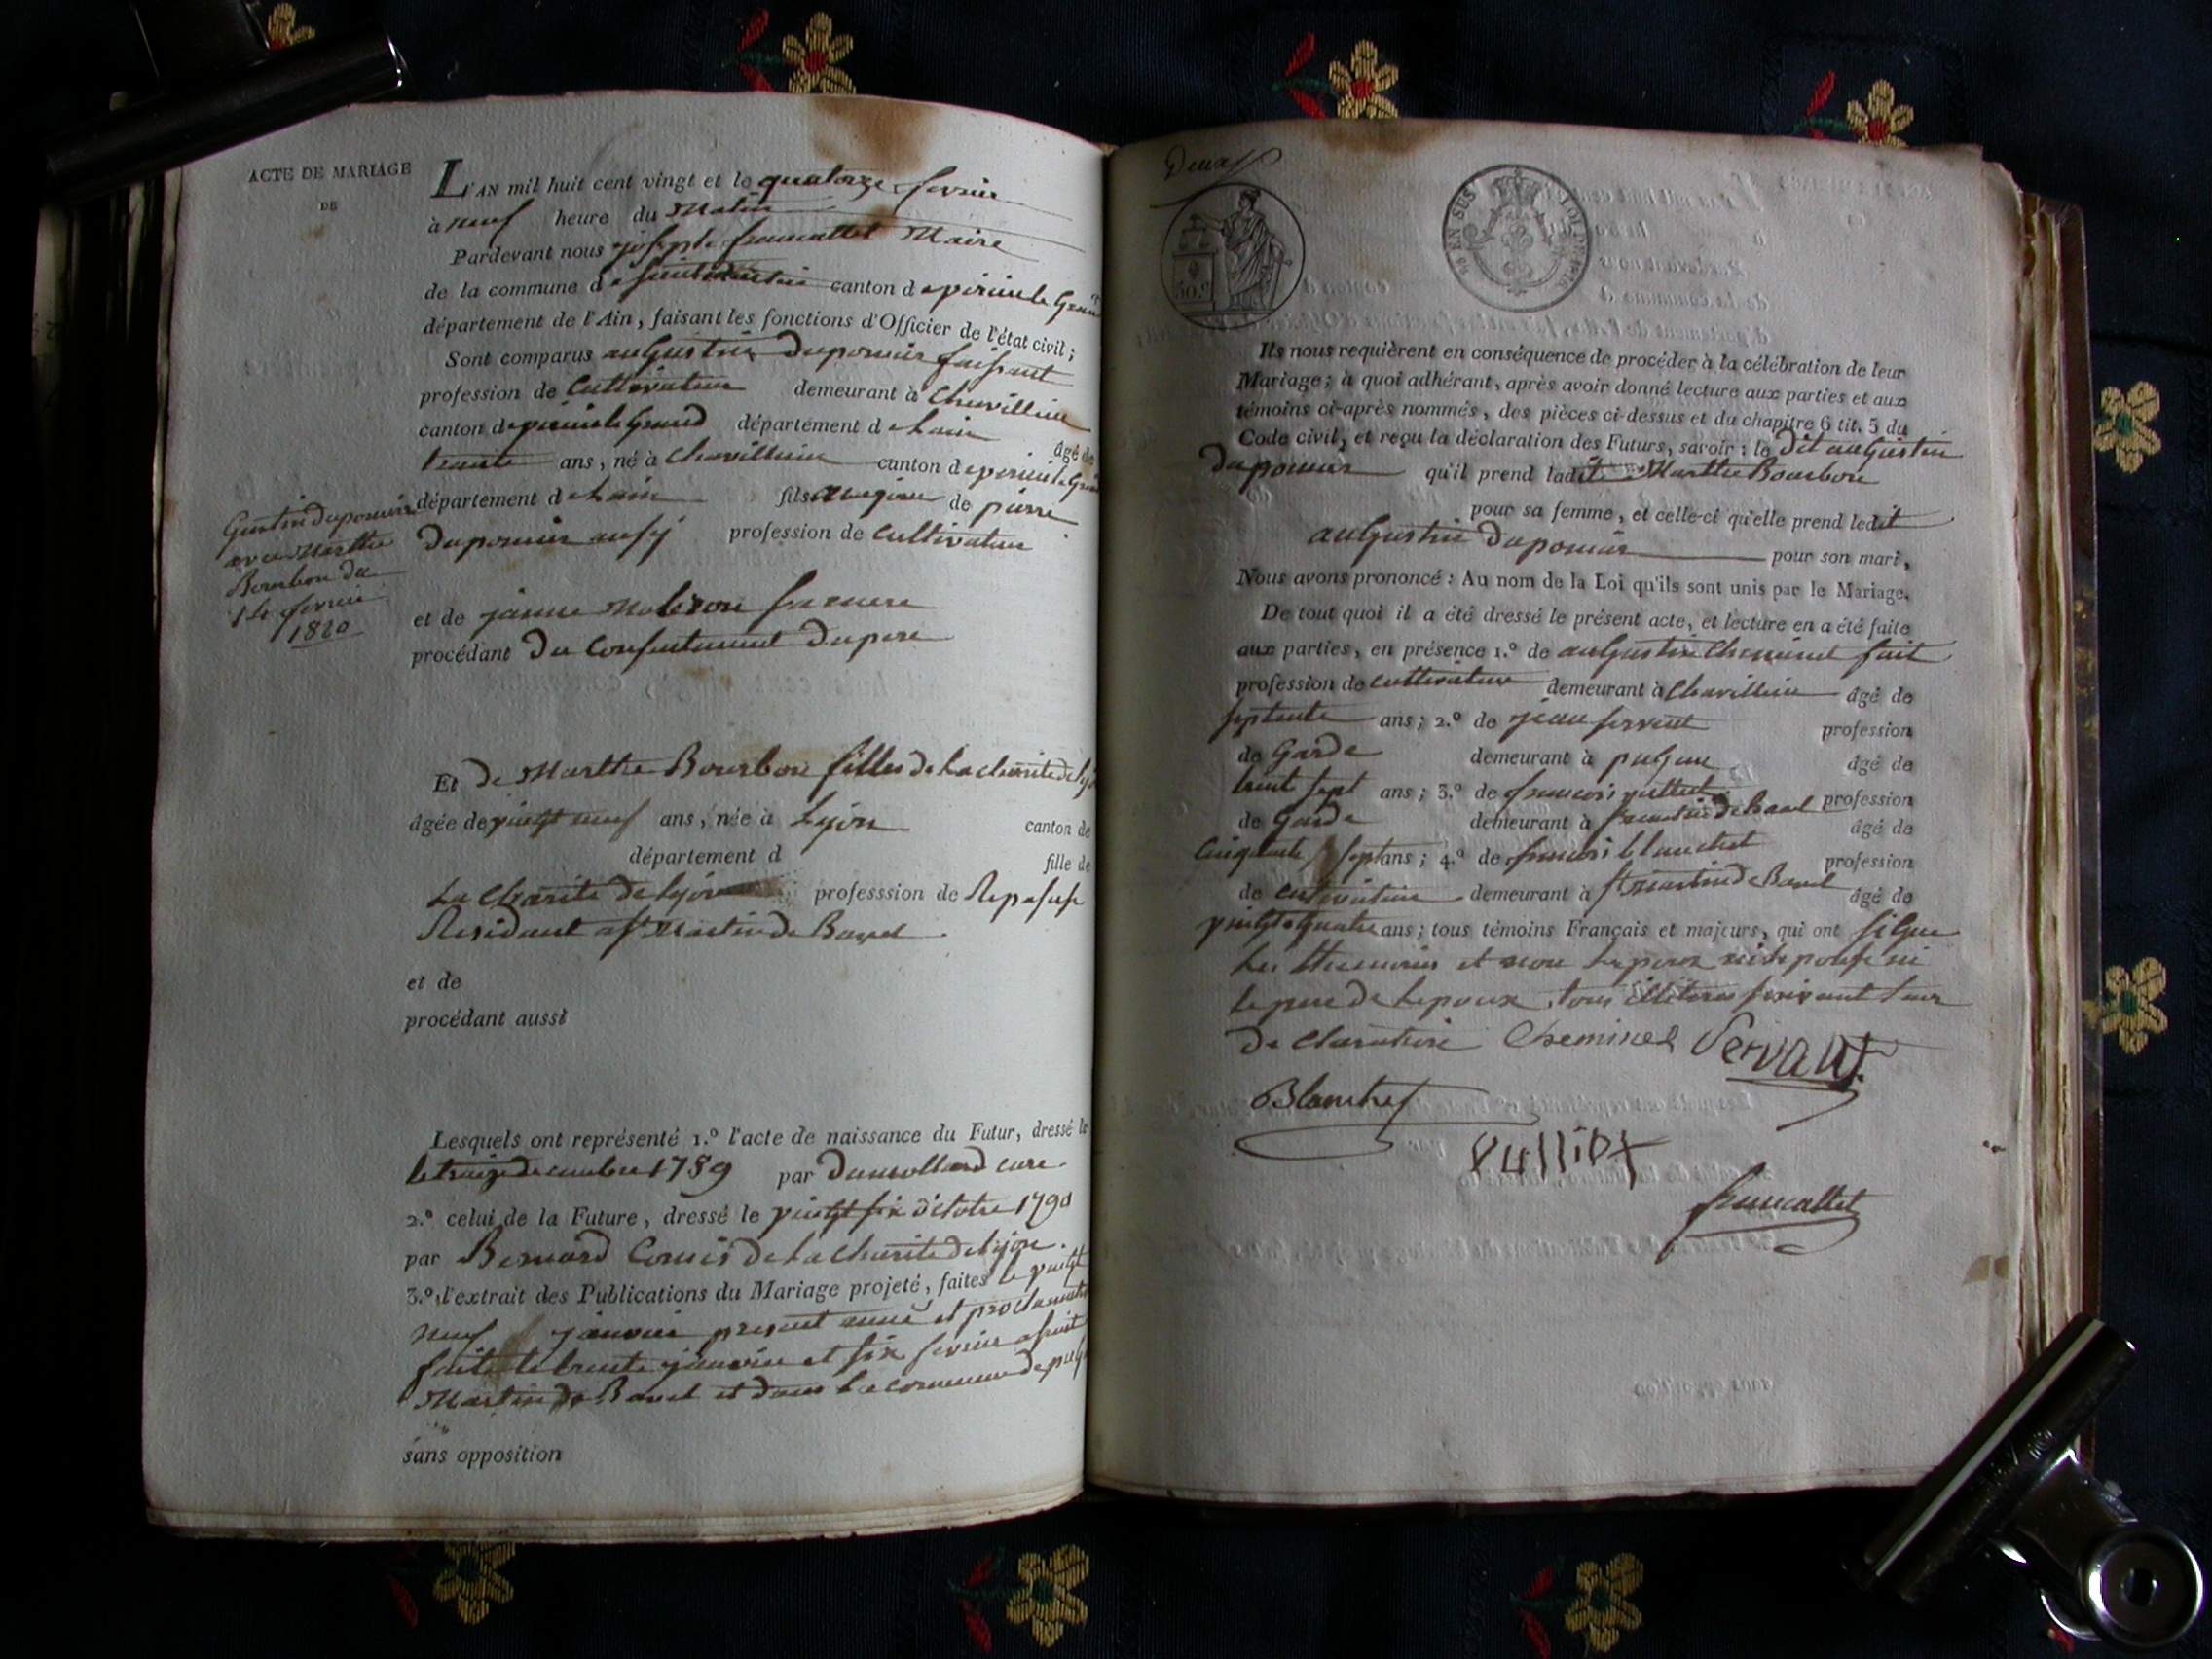 ACTE DE MARIAGE
DE
L'AN mil huit cent vingt et le quatorze fevrier
à neuf heure du Matin
Pardevant nous joseph francallet Maire
de la commune de canton de virieu le Grand
département de l'Ain, faisant les fonctions d'Officier de l'état civil;
Sont comparus augustin Duponir faissant
profession de Cultivateur demeurant à Chavillieu
canton de virieu le Grand département de Lain âgé de
trente ans, né à Chavillieu canton de virieu le Grand
département de Lain fils majeur de pierre
Duponir ausy profession de Cultivateur
Gustin Duponir
avec Marthe
Bourbon du
14 fevrie
1820
et de janne Molizon sa mere
procédant Du Consentement Du pere
Et De Marthe Bourbon filles de La charité de Lyon
âgée de vingt neuf ans, née à Lyon canton de
département d fille de
La Charité de Lyon professsion de Repasese
Residant a st Martin de Bavel
et de
procédant aussi
Lesquels ont représenté 1.º l'acte de naissance du Futur, dressé le
le treize decembre 1789 par Dumollard cure
2.º celui de la Future, dressé le vingt six octobre 1790
par Bernard Comis de La Charité de Lyon.
3.º l'extrait des Publications du Mariage projeté, faites le vingt
neuf janvier present anné et proclamation
faite le trente janvier et six fevrier a saint
Martin de Bavel et dans La commune de pugi
sans opposition
Deux
50.c
EN SUS
Ils nous requièrent en conséquence de procéder à la célébration de leur
Mariage; à quoi adhérant, après avoir donné lecture aux parties et aux
témoins ci-après nommés, des pièces ci-dessus et du chapitre 6 tit. 5 du
Code civil, et reçu la déclaration des Futurs, savoir: le Dit augustin
Duponir qu'il prend ladite Marthe Bourbon
pour sa femme, et celle-ci qu'elle prend ledit
augustin Duponir pour son mari,
Nous avons prononcé: Au nom de la Loi qu'ils sont unis par le Mariage.
De tout quoi il a été dressé le présent acte, et lecture en a été faite
aux parties, en présence 1.º de augustin Cheminel fait
profession de cultivateur demeurant à Chavillieu âgé de
septente ans; 2.º de jean servent profession
de Garde demeurant à pugieu âgé de
trente sept ans; 3.º de francois vulliet profession
de Garde demeurant à st martin de Bavel âgé de
Cinquante sept ans; 4.º de francois blanchet profession
de cultivateur demeurant à st martin de Bavel âgé de
vingt quatre ans; tous témoins Français et majeurs, qui ont signe
Les themoins et non Lepoux ni Lepouse ni
le pere de Lepoux tous illiteres suivant Leur
Declaration Cheminel Servant
Blanchet
Vulliet
francallet